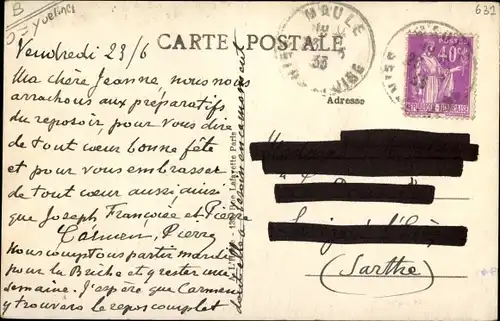 B
Yvelines
632
MAULE
CARTE POSTALE
Adresse
40c
Vendredi 23/6
Ma chère Jeanne, nous nous
arrachons aux préparatifs
du reposoir, pour vous dire
de tout cœur bonne fête
et pour vous embrasser
de tout cœur aussi ainsi
que Joseph Françoise et Pierre
Carmen, Pierre
Nous comptons partir mardi
pour la Briche et y rester une
semaine. J'espère que Carmen
y trouvera le repos complet
dont elle a besoin en ce moment
Rue Lafayette Paris
(Sarthe)